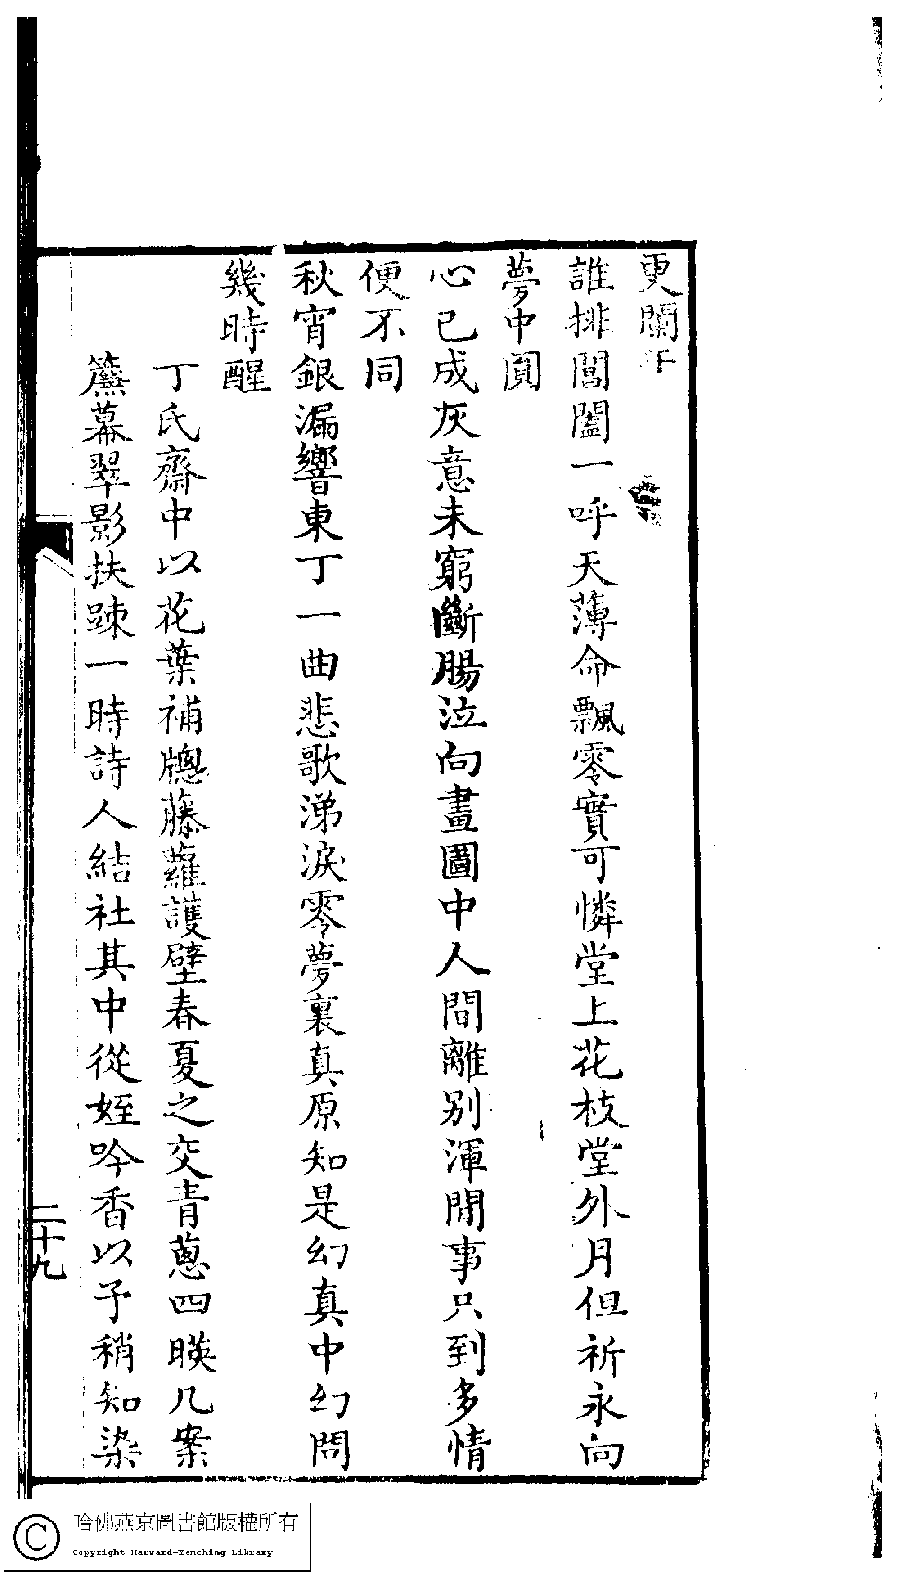 更闌干
誰排閶闔一呼天薄命飄零實可憐堂上花枝堂外月但祈永向
夢中圓
心已成灰意未窮斷腸泣向畫圖中人間離別渾閒事只到多情
便不同
秋宵銀漏響東丁一曲悲歌涕淚零夢裏真原知是幻真中幻問
幾時醒
丁氏齋中以花葉補牕藤蘿護壁春夏之交青蔥四暎几案
簾幕翠影扶踈一時詩人結社其中從姪吟香以予稍知染
二十九
哈佛燕京圖書館版權所有
Copyright Harvard-Yenching Library